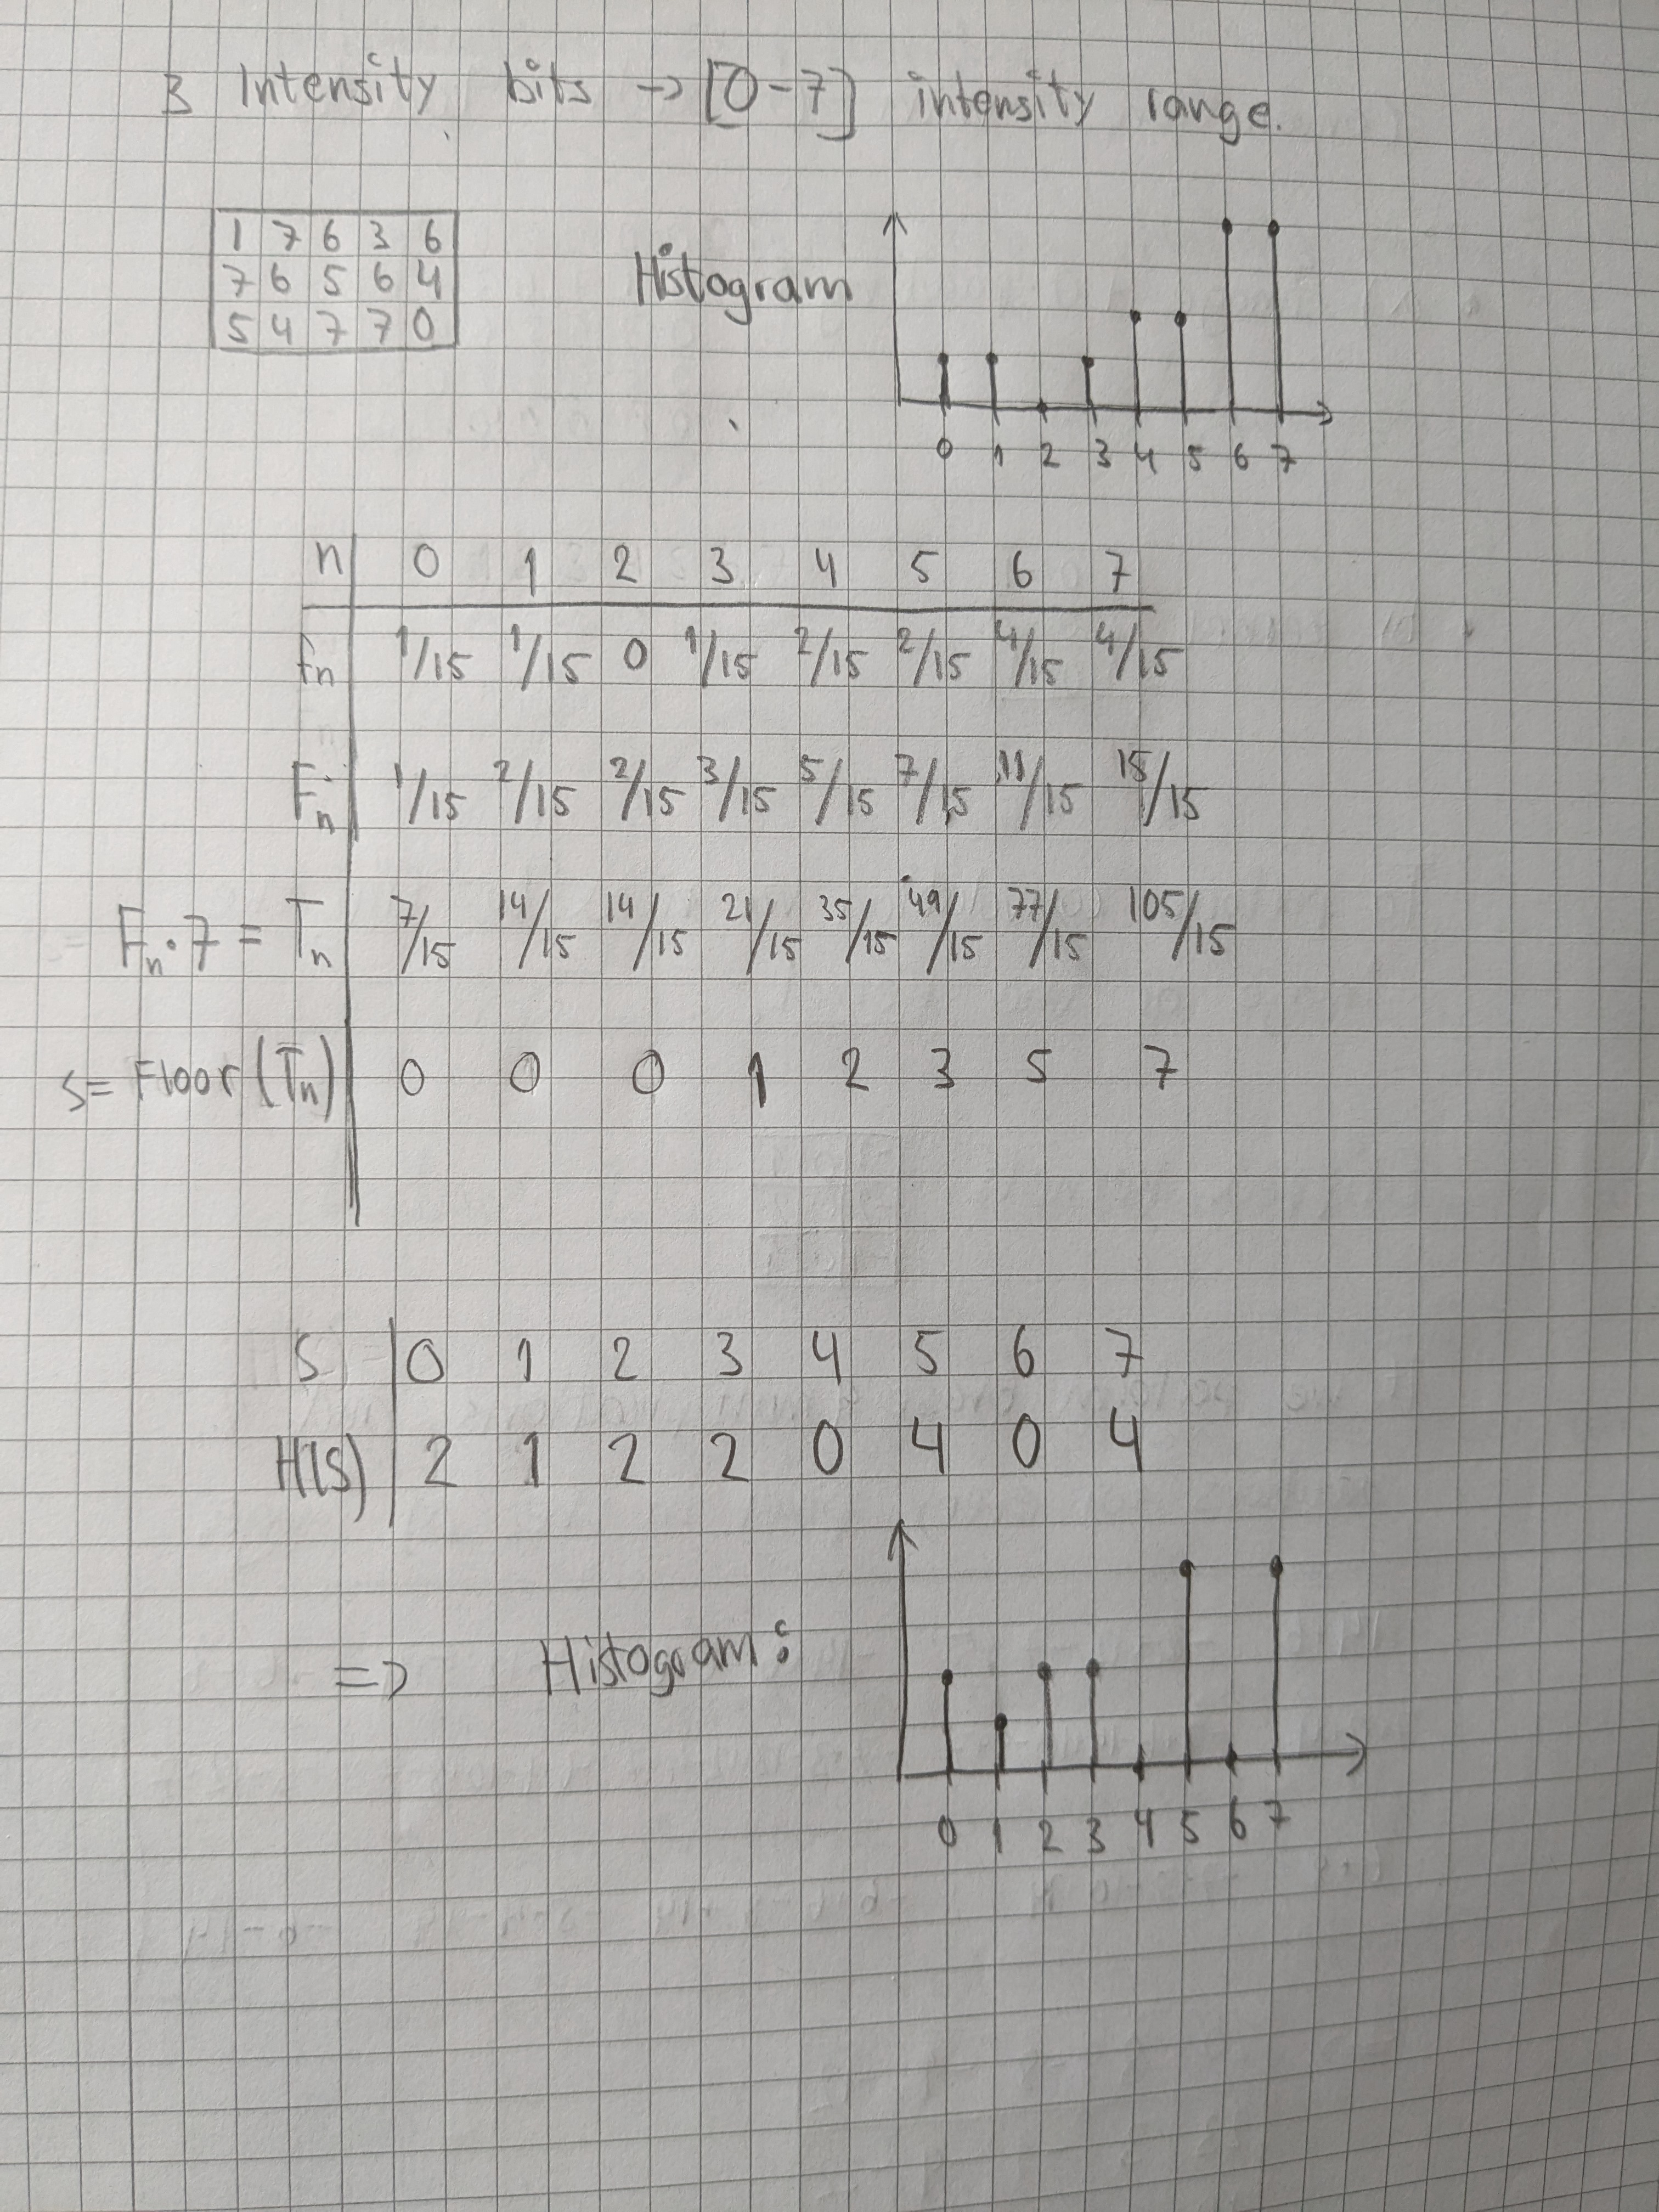 3 Intensity bits → [0-7] intensity range.
1 7 6 3 6
7 6 5 6 4
5 4 7 7 0
Histogram
0 1 2 3 4 5 6 7
n 0 1 2 3 4 5 6 7
fn 1/15 1/15 0 1/15 2/15 2/15 4/15 4/15
Fn 1/15 2/15 2/15 3/15 5/15 7/15 11/15 15/15
Fn · 7 = Tn 7/15 14/15 14/15 21/15 35/15 49/15 77/15 105/15
s = Floor (Tn) 0 0 0 1 2 3 5 7
S 0 1 2 3 4 5 6 7
H(s) 2 1 2 2 0 4 0 4
=> Histogram:
0 1 2 3 4 5 6 7